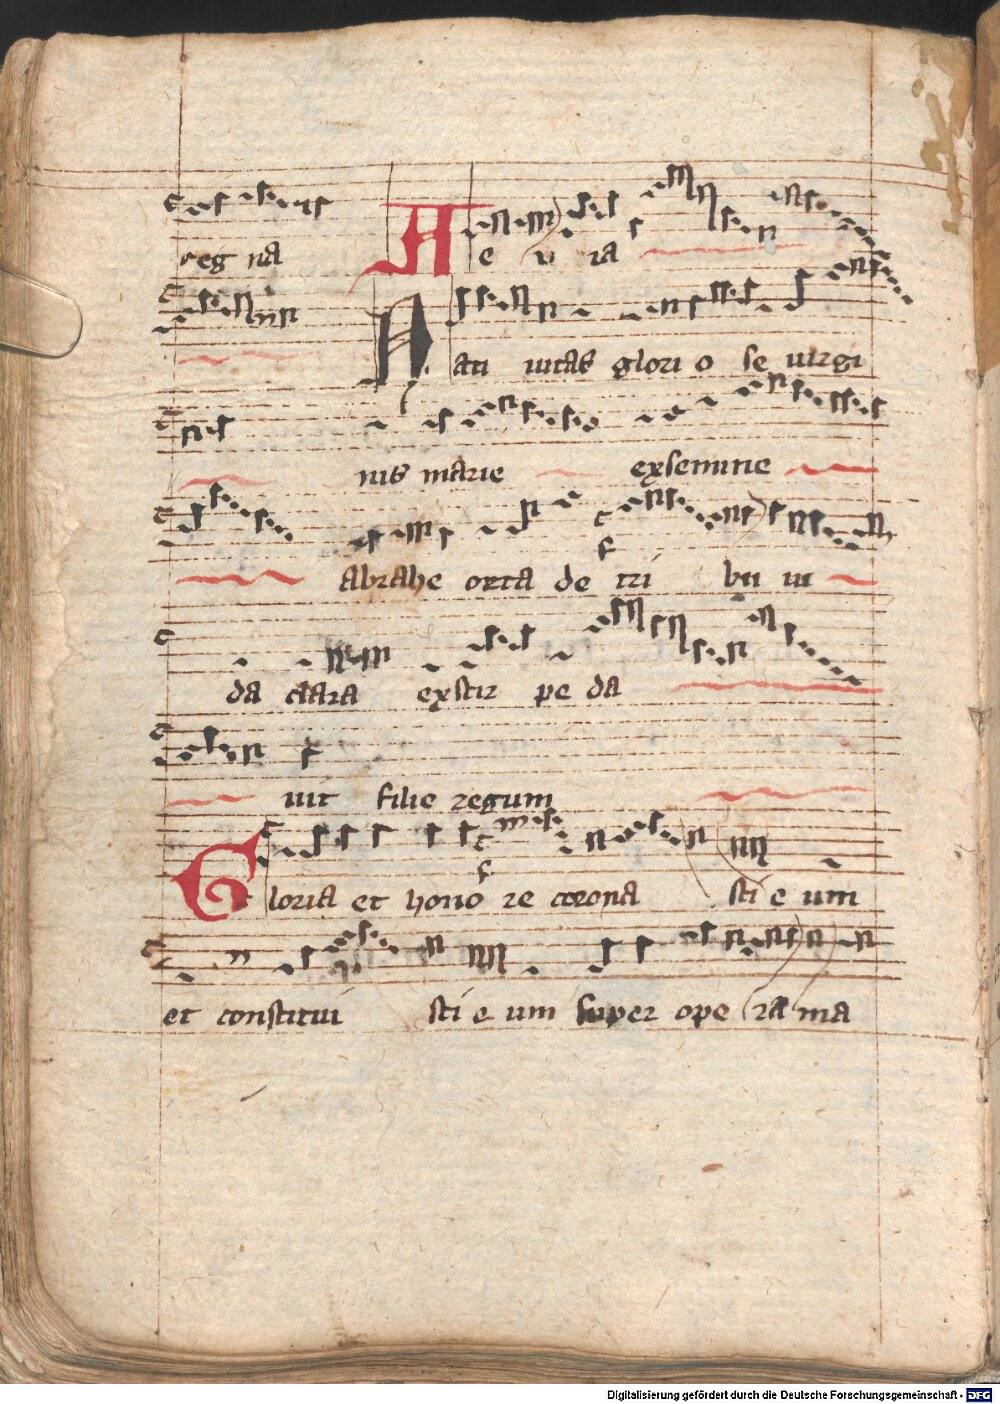 regna A e u ia
Nati uitas glori o se uirgi
nis marie ex semine
abrahe orta de tri bu iu
da clara ex stir pe da
uit filie regum
Gloria et hono re corona sti e um
et constitui sti e um super ope ra ma
Digitalisierung gefördert durch die Deutsche Forschungsgemeinschaft - DFG